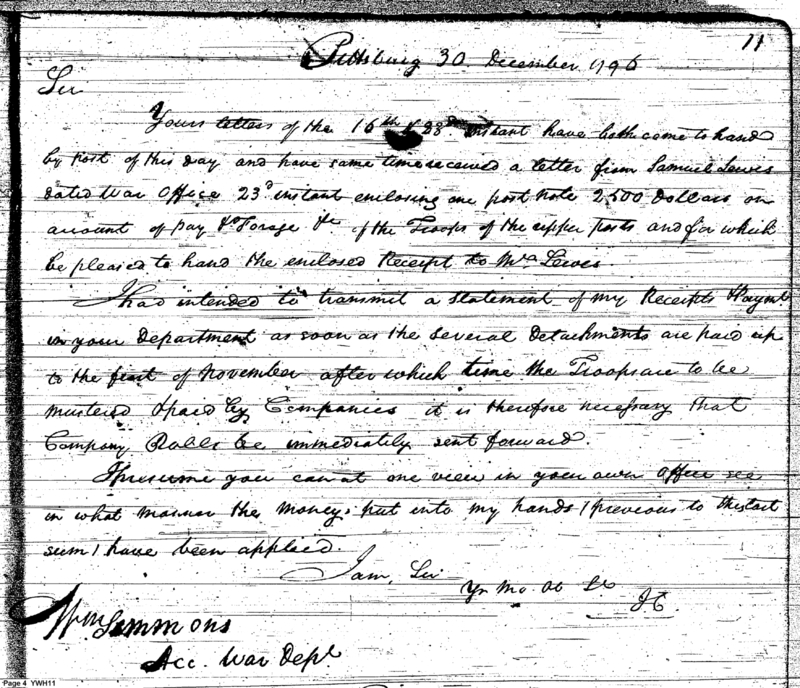 11
Pittsburg 30 December 1796
Sir
Yours letters of the 16th & 23d instant have both come to hand
by post of this day and have same time received a letter from Samuel Lewis
dated War Office 23d instant enclosing one post note 2,500 Dollars on
account of pay & Forage &c of the Troops of the upper posts and for which
be pleased to hand the enclosed Receipt to Mr Lewis
I had intended to transmit a statement of my Receipts & Paymt
in your Department as soon as the several Detachments are paid up
to the first of November after which time the Troops are to be
mustered & paid by Companies it is therefore necessary that
Company Rolls be immediately sent forward.
I presume you can at one view in your own office see
in what manner the money put into my hands (previous to the last
sum) have been applied.
I am, Sir
Yr Mo. Ob St
JC
Wm Simmons
Acc. War Dept
Page 4 YWH11